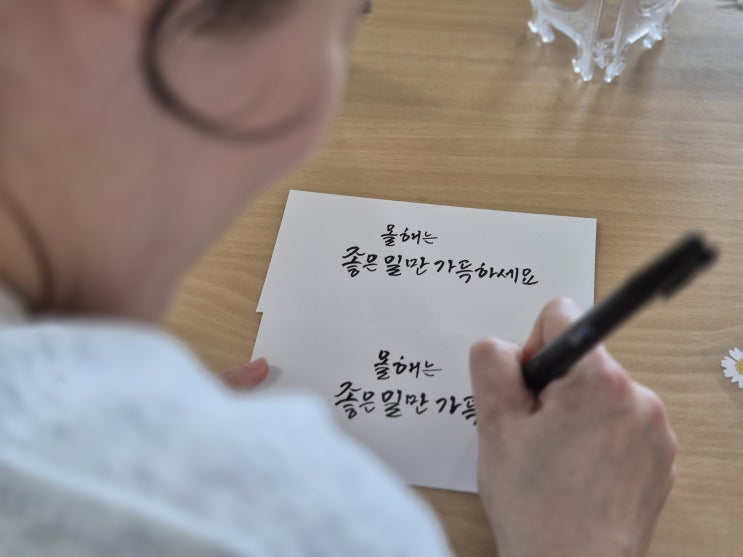 올해는
좋은 일만 가득하세요
올해는
좋은 일만 가득